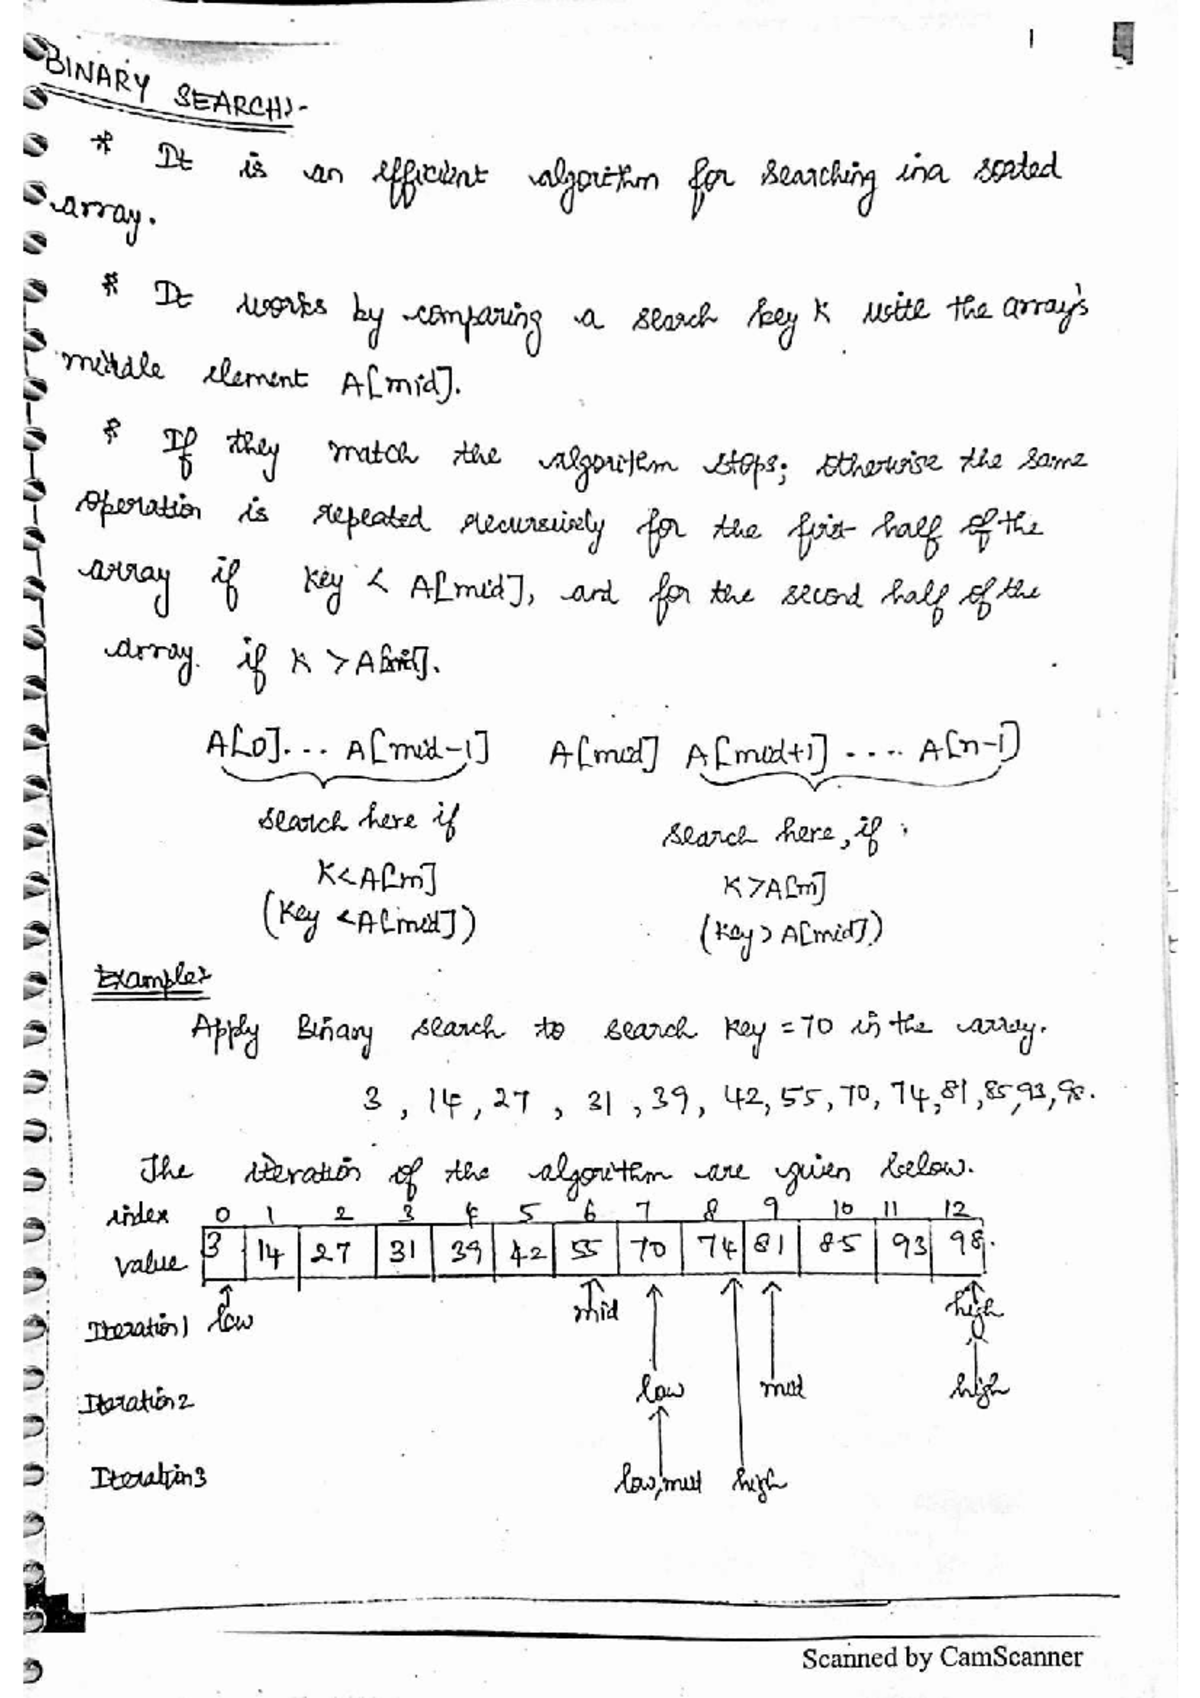 1
BINARY SEARCH:-
* It is an efficient algorithm for searching in a sorted
array.
* It works by comparing a search key K with the array's
middle element A[mid].
* If they match the algorithm stops; otherwise the same
operation is repeated recursively for the first half of the
array if key < A[mid], and for the second half of the
array. if K > A[mid].
A[0]. ... A[mid-1] A[mid] A[mid+1] .... A[n-1]
search here if search here, if
K<A[m] K>A[m]
(key <A[mid]) (key > A[mid])
Example:
Apply Binary search to search key = 70 in the array.
3, 14, 27, 31, 39, 42, 55, 70, 74, 81, 85, 93, 98.
The iteration of the algorithm are given below.
index 0 1 2 3 4 5 6 7 8 9 10 11 12
value 3 14 27 31 39 42 55 70 74 81 85 93 98
Iteration1 low mid high
Iteration2 low mid high
Iteration3 low,mid high
Scanned by CamScanner